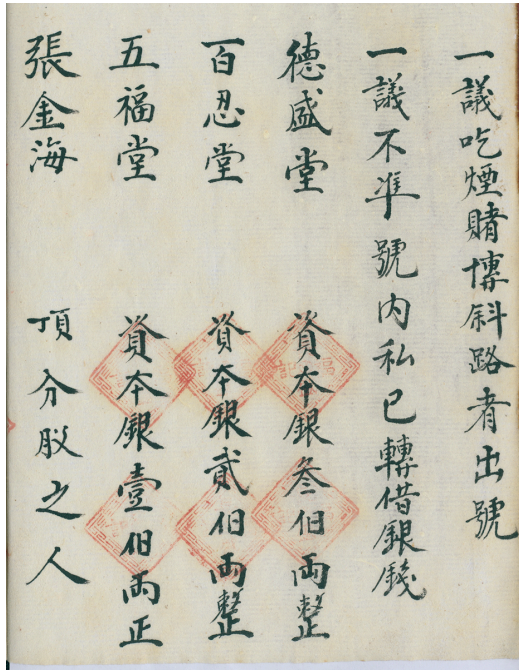 一議吃煙賭博斜路者出號
一議不準號內私已轉借銀錢
德盛堂 資本銀叁佰両整
百忍堂 資本銀貳佰両整
五福堂 資本銀壹佰両正
張金海 頂分股之人